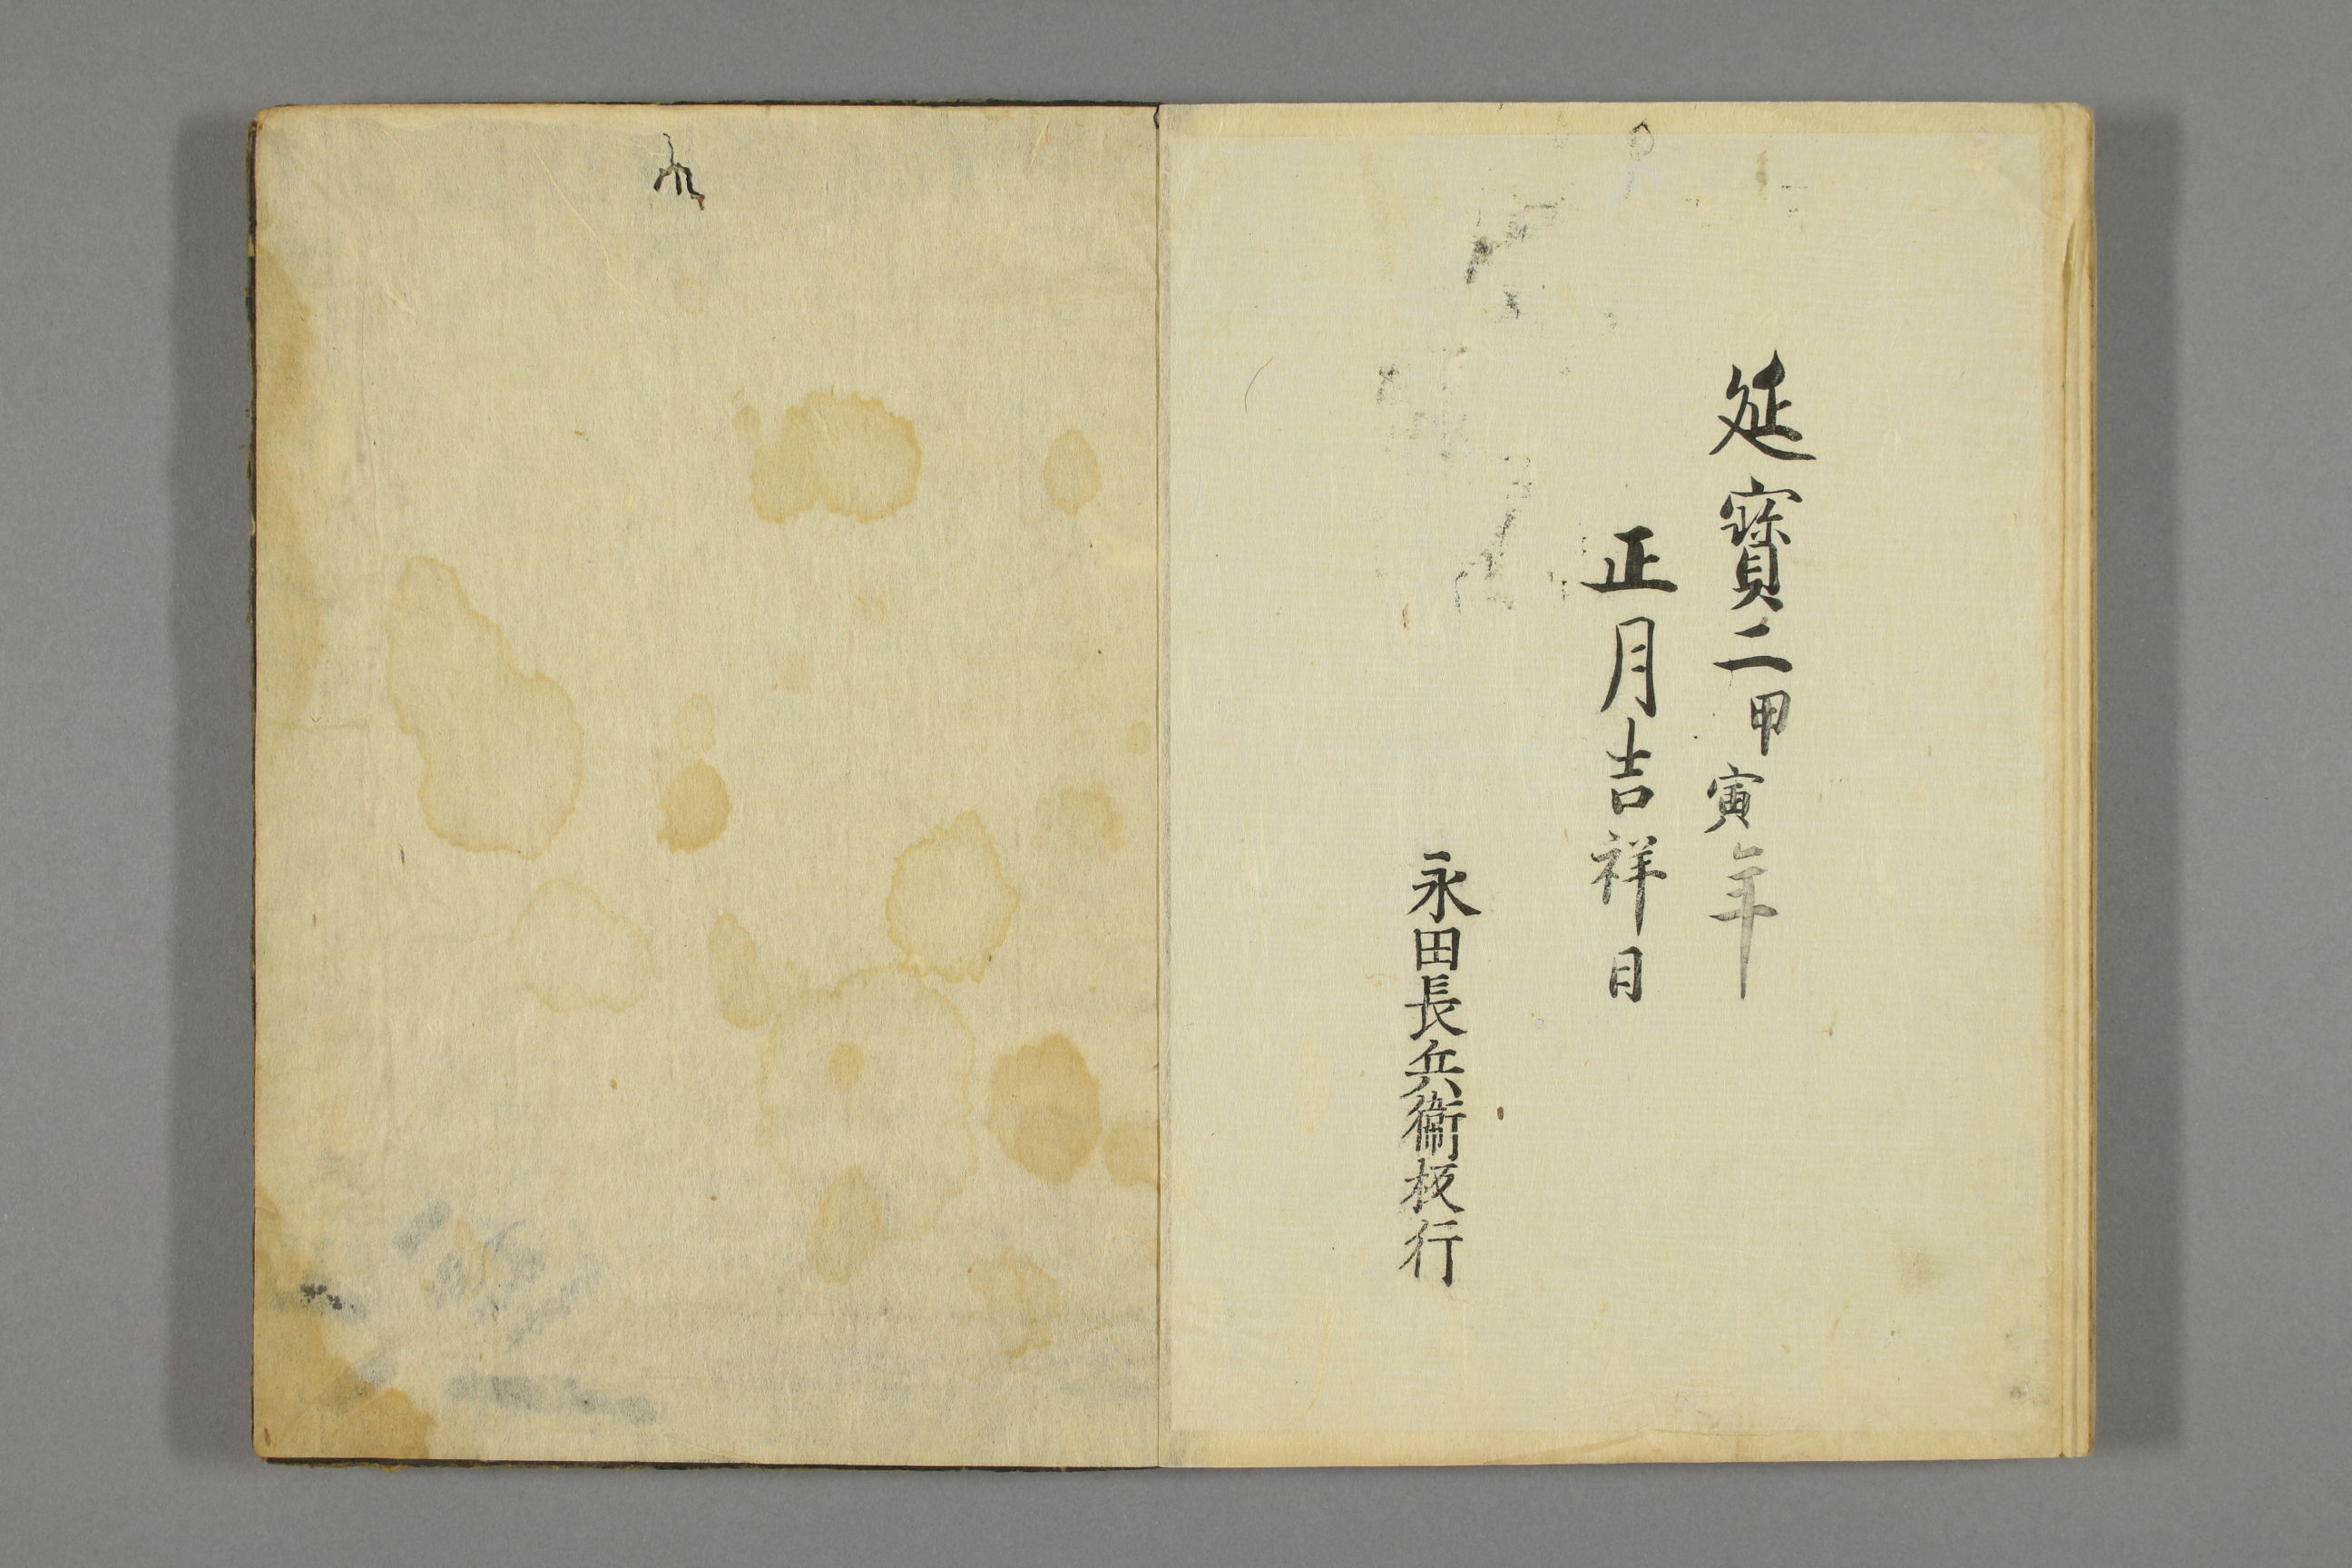 延寳二甲寅年
正月吉祥日
永田長兵衞板行